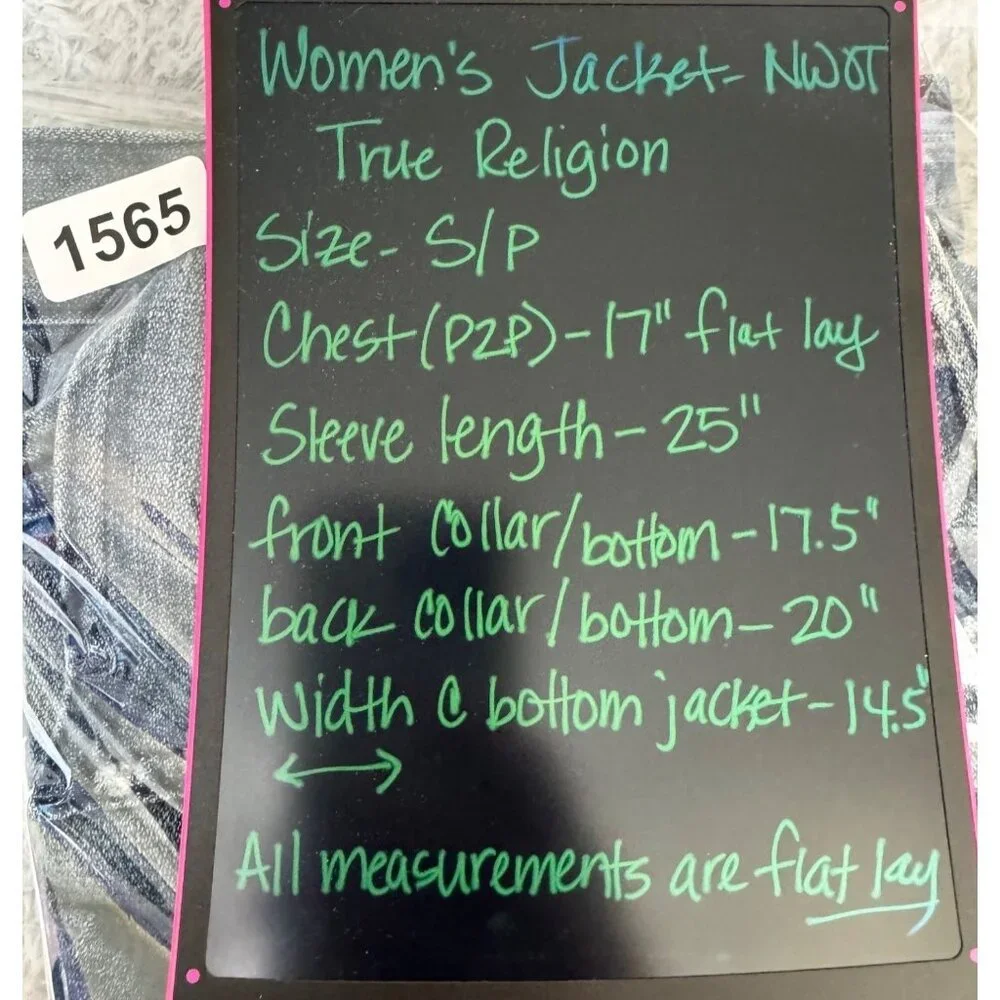 Women's Jacket- NWOT
True Religion
1565
Size- S/P
Chest (P2P)-17" flat lay
Sleeve length- 25"
front collar/bottom-17.5"
back collar/bottom- 20"
Width @ bottom jacket-14.5"
All measurements are flat lay